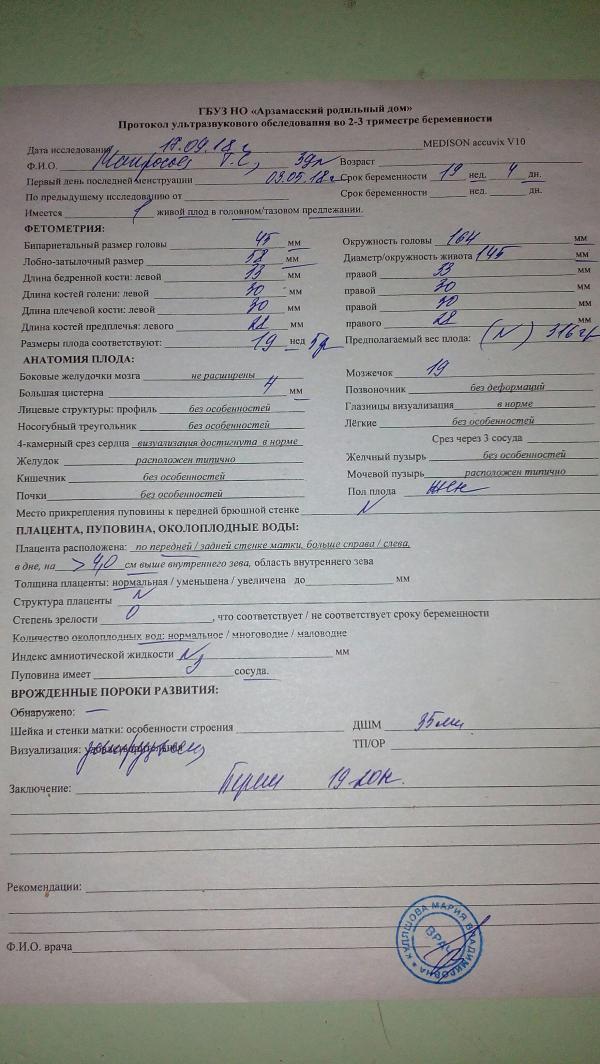 ГБУЗ НО «Арзамасский родильный дом»
Протокол ультразвукового обследования во 2-3 триместре беременности
Дата исследования 17.09.18 г MEDISON accuvix V10
Ф.И.О. Возраст
Первый день последней менструации 03.05.18 г Срок беременности 19 нед. 4 дн.
По предыдущему исследованию от Срок беременности нед. дн.
Имеется 1 живой плод в головном/тазовом предлежании.
ФЕТОМЕТРИЯ:
Бипариетальный размер головы 45 мм Окружность головы 164 мм
Лобно-затылочный размер 58 мм Диаметр/окружность живота 145 мм
Длина бедренной кости: левой 33 мм правой 33 мм
Длина костей голени: левой 30 мм правой 30 мм
Длина плечевой кости: левой 30 мм правой 30 мм
Длина костей предплечья: левого 28 мм правого 28 мм
Размеры плода соответствуют: 19 нед 5 д Предполагаемый вес плода: (N) 316 гр
АНАТОМИЯ ПЛОДА:
Боковые желудочки мозга не расширены Мозжечок 19
Большая цистерна 4 мм Позвоночник без деформаций
Лицевые структуры: профиль без особенностей Глазницы визуализация в норме
Носогубный треугольник без особенностей Лёгкие без особенностей
4-камерный срез сердца визуализация достигнута в норме Срез через 3 сосуда
Желудок расположен типично Желчный пузырь без особенностей
Кишечник без особенностей Мочевой пузырь расположен типично
Почки без особенностей Пол плода жен
Место прикрепления пуповины к передней брюшной стенке N
ПЛАЦЕНТА, ПУПОВИНА, ОКОЛОПЛОДНЫЕ ВОДЫ:
Плацента расположена: по передней / задней стенке матки, больше справа / слева,
в дне, на > 4,0 см выше внутреннего зева, область внутреннего зева
Толщина плаценты: нормальная / уменьшена / увеличена до мм
Структура плаценты N
Степень зрелости 0, что соответствует / не соответствует сроку беременности
Количество околоплодных вод: нормальное / многоводие / маловодие
Индекс амниотической жидкости N мм
Пуповина имеет 3 сосуда.
ВРОЖДЕННЫЕ ПОРОКИ РАЗВИТИЯ:
Обнаружено: —
Шейка и стенки матки: особенности строения ДШМ 35мм
Визуализация: ТП/ОР
Заключение: 19
Рекомендации:
Ф.И.О. врача
МАРИЯ ВЛАДИМИРОВНА
ВРАЧ